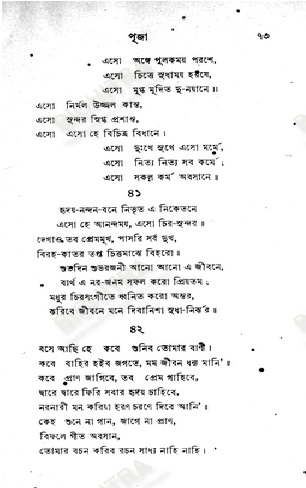 পূজা ৭৩
এসো অঙ্গে পুলকময় পরশে,
এসো চিত্তে সুধাময় হরষে,
এসো মুগ্ধ মুদিত দু-নয়ানে॥
এসো নির্মল উজ্জ্বল কান্ত,
এসো সুন্দর স্নিগ্ধ প্রশান্ত,
এসো এসো হে বিচিত্র বিধানে।
এসো দুঃখে সুখে এসো মর্মে,
এসো নিত্য নিত্য সব কর্মে;
এসো সকল কর্ম অবসানে॥
৪১
হৃদয়-নন্দন-বনে নিভৃত এ নিকেতনে
এসো হে আনন্দময়, এসো চির-সুন্দর॥
দেখাও তব প্রেমমুখ, পাসরি সর্ব দুখ,
বিরহ-কাতর তপ্ত চিত্তমাঝে বিহরো॥
শুভদিন শুভরজনী আনো আনো এ জীবনে,
ব্যর্থ এ নর-জনম সফল করো প্রিয়তম;
মধুর চিরসংগীতে ধ্বনিত করো অন্তর,
ঝরিবে জীবনে মনে দিবানিশা সুধা-নির্ঝর॥
৪২
বসে আছি হে কবে শুনিব তোমার বাণী।
কবে বাহির হইব জগতে, মম জীবন ধন্য মানি'॥
কবে প্রাণ জাগিবে, তব প্রেম গাহিবে,
দ্বারে দ্বারে ফিরি সবার হৃদয় চাহিবে,
নরনারী মন করিয়া হরণ চরণে দিবে আনি'॥
কেহ শুনে না গান, জাগে না প্রাণ,
বিফলে গীত অবসান,
তোমার বচন করিব রচন সাধ্য নাহি নাহি।